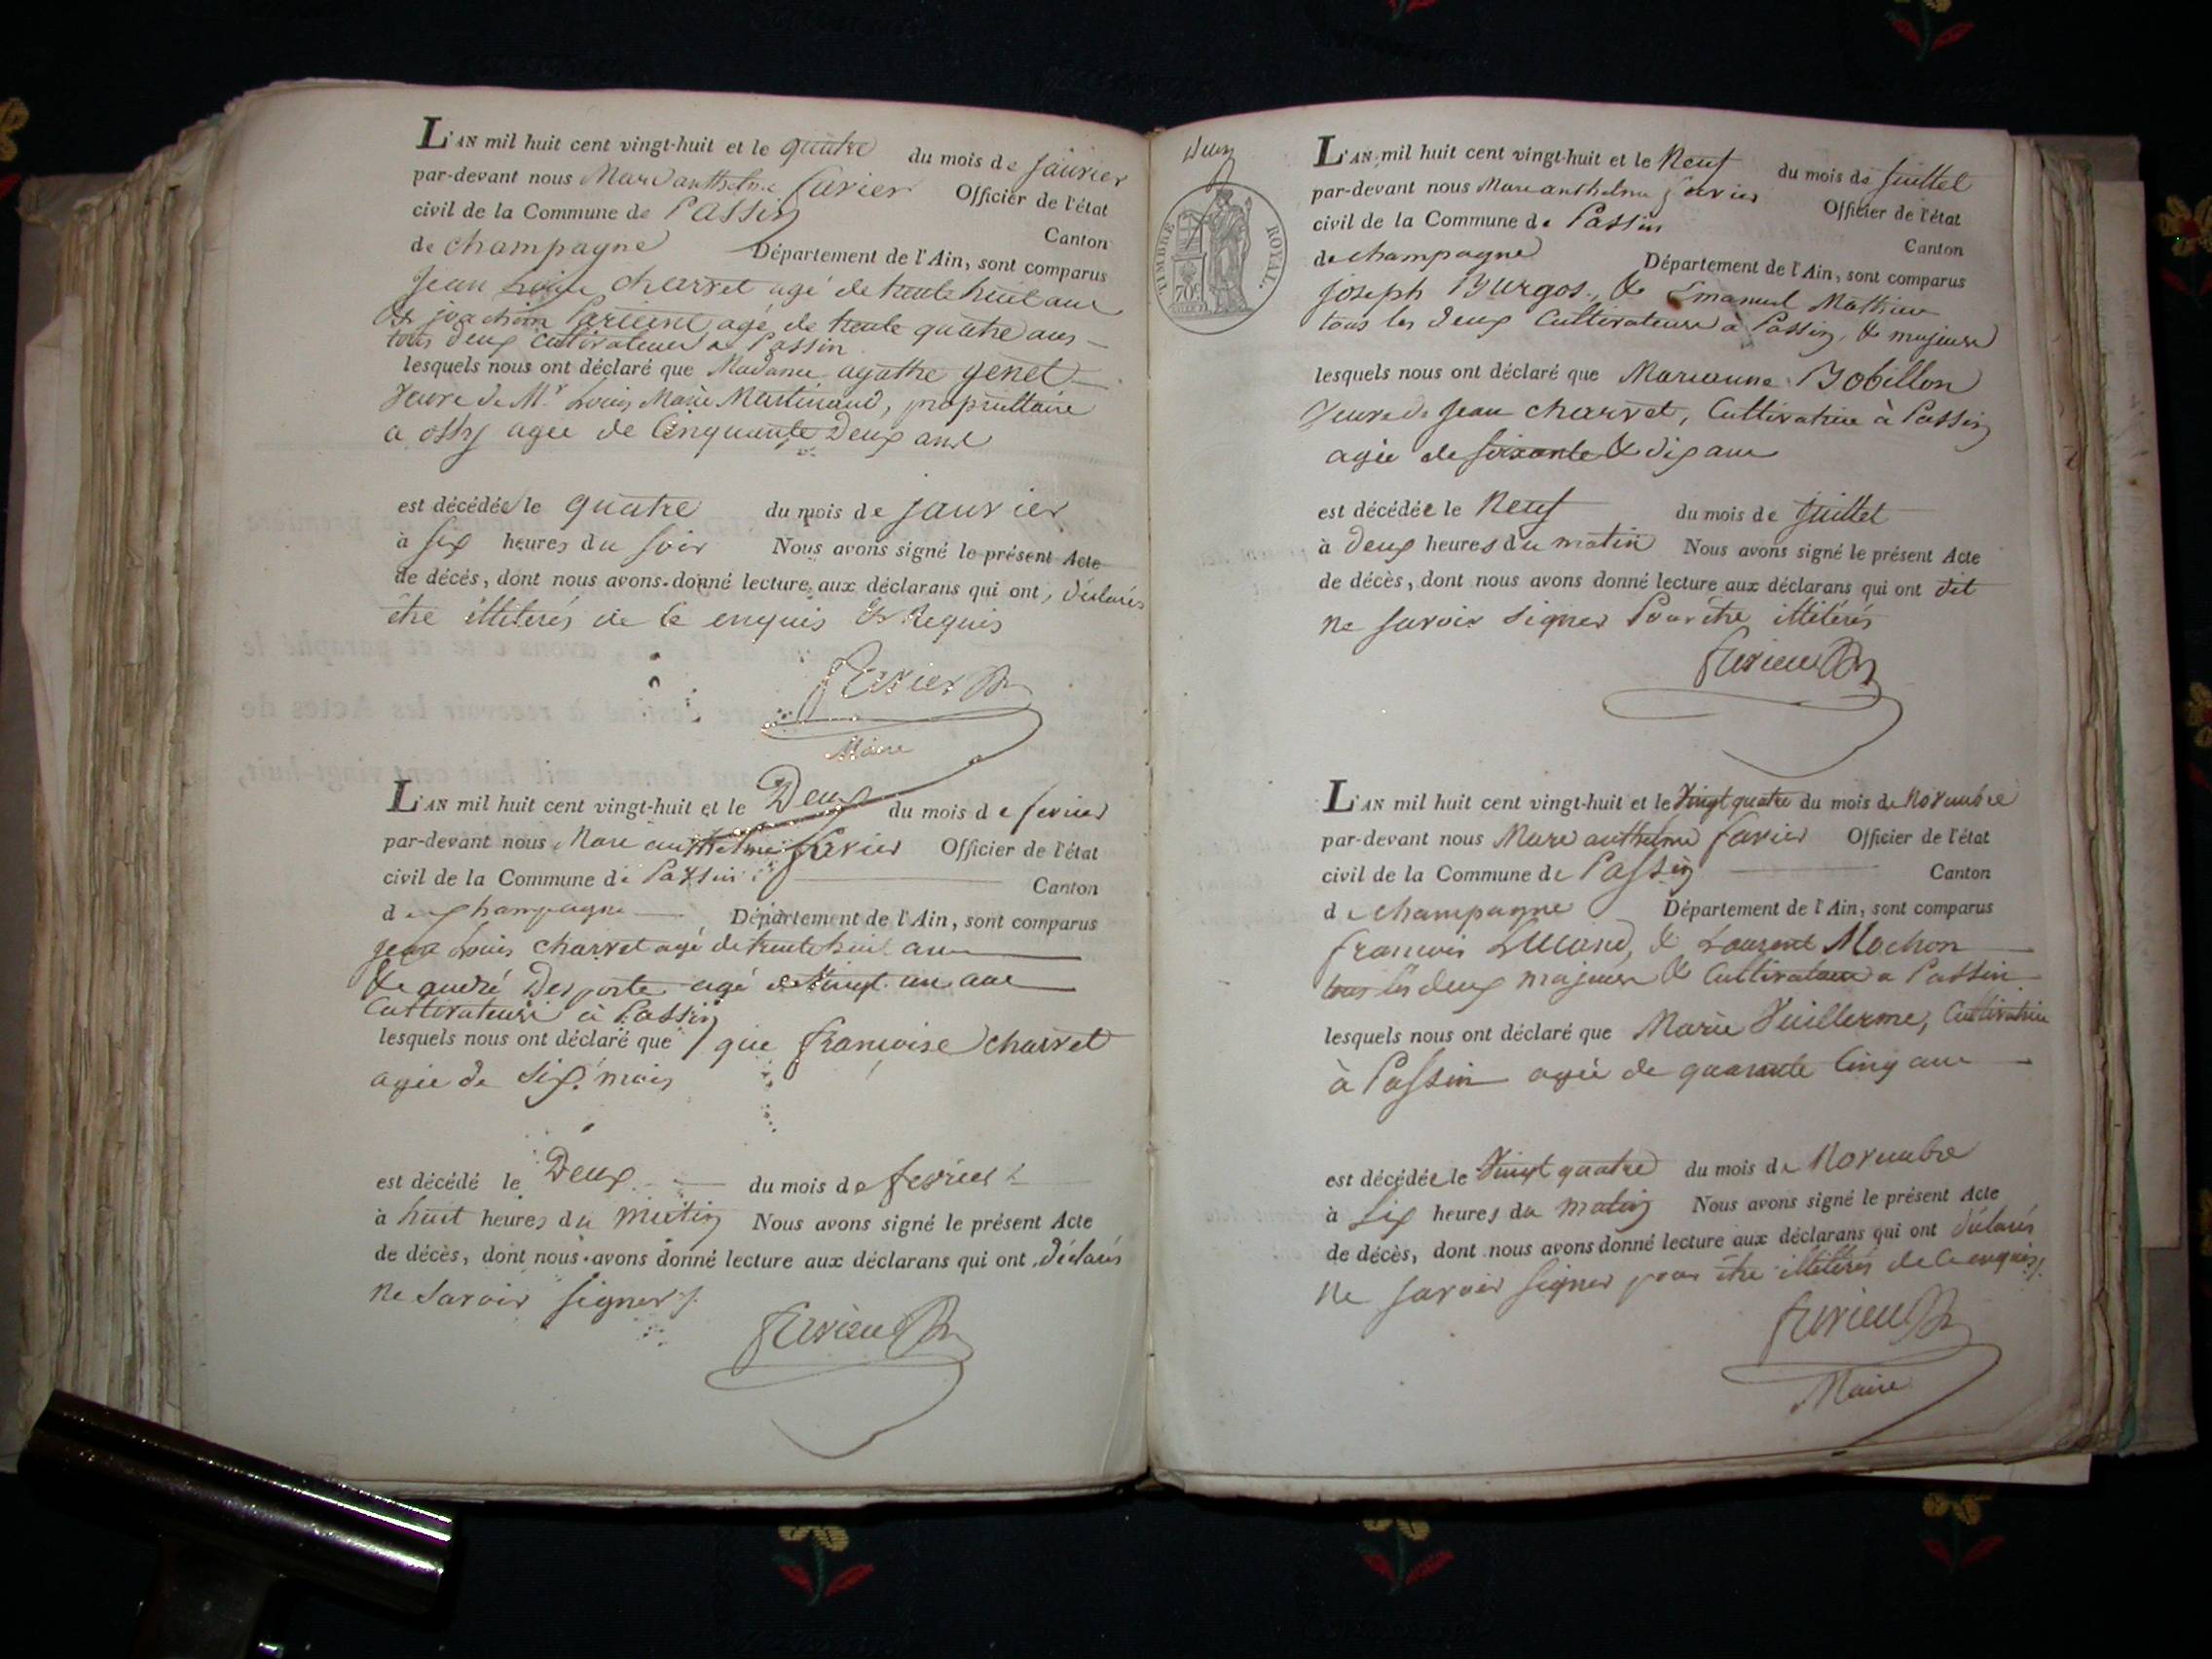 L'AN mil huit cent vingt-huit et le quatre du mois de janvier
par-devant nous Marc anthelme favier Officier de l'état
civil de la Commune de Passin Canton
de champagne Département de l'Ain, sont comparus
Jean Louis charvet agé de trente huit ans
& joachim agé de trente quatre ans
tous deux cultivateurs a Passin
lesquels nous ont déclaré que Madame agathe genet
veuve de Mr Louis Marie Martinand, propriettaire
a ossy agee de Cinquante Deux ans
est décédée le quatre du mois de janvier
à six heures du soir Nous avons signé le présent Acte
de décès, dont nous avons donné lecture aux déclarans qui ont, déclarés
être illiterés de ce enquis & Requis
favier
Maire
L'AN mil huit cent vingt-huit et le Deux du mois de fevrier
par-devant nous Marc anthelme favier Officier de l'état
civil de la Commune de Passin Canton
de champagne Département de l'Ain, sont comparus
jean Louis charvet agé de trente huit ans
& andré Desporte agé de vingt un ans
Cultivateurs à Passin
lesquels nous ont déclaré que / que françoise charvet
agée de Six mois
est décédé le Deux du mois de fevrier
à huit heures du matin Nous avons signé le présent Acte
de décès, dont nous avons donné lecture aux déclarans qui ont déclarés
ne Savoir signer /.
favier
Deux
TIMBRE ROYAL.
70c
L'AN mil huit cent vingt-huit et le Neuf du mois de juillet
par-devant nous Marc anthelme favier Officier de l'état
civil de la Commune de Passin Canton
de champagne Département de l'Ain, sont comparus
joseph Burgos, & Emanuel Mathieu
tous les deux Cultivateurs à Passin, & majeurs
lesquels nous ont déclaré que Marianne Bobillon
Veuve de Jean charvet, Cultivatrice à Passin
agée de soixante & dix ans
est décédée le Neuf du mois de juillet
à deux heures du matin Nous avons signé le présent Acte
de décès, dont nous avons donné lecture aux déclarans qui ont dit
ne savoir signer Pour être illitérés
favier
L'AN mil huit cent vingt-huit et le Vingt quatre du mois de Novembre
par-devant nous Marc anthelme favier Officier de l'état
civil de la Commune de Passin Canton
de champagne Département de l'Ain, sont comparus
francois & Laurent Mochon
tous les deux majeurs & Cultivateurs a Passin
lesquels nous ont déclaré que Marie Vuillerme, Cultivatrice
à Passin agée de quarante Cinq ans
est décédée le Vingt quatre du mois de Novembre
à Six heures du matin Nous avons signé le présent Acte
de décès, dont nous avons donné lecture aux déclarans qui ont déclarés
ne savoir signer pour être illitérés de ce enquis /.
favier
Maire